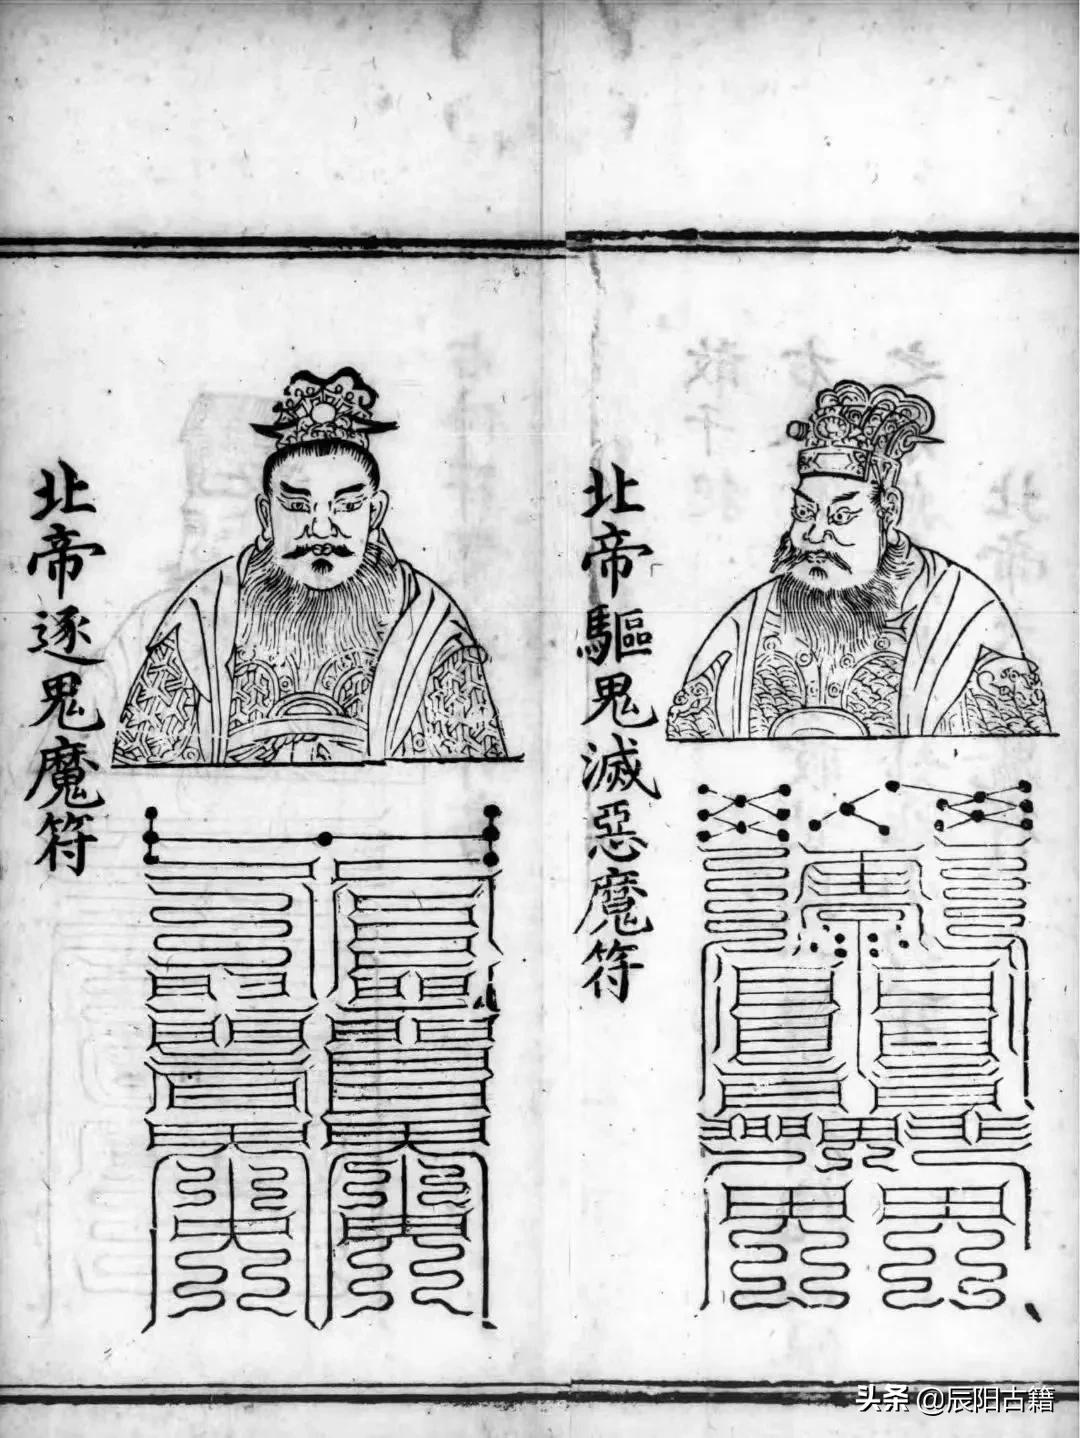 北帝驅鬼滅惡魔符
北帝逐鬼魔符
头条 @辰阳古籍